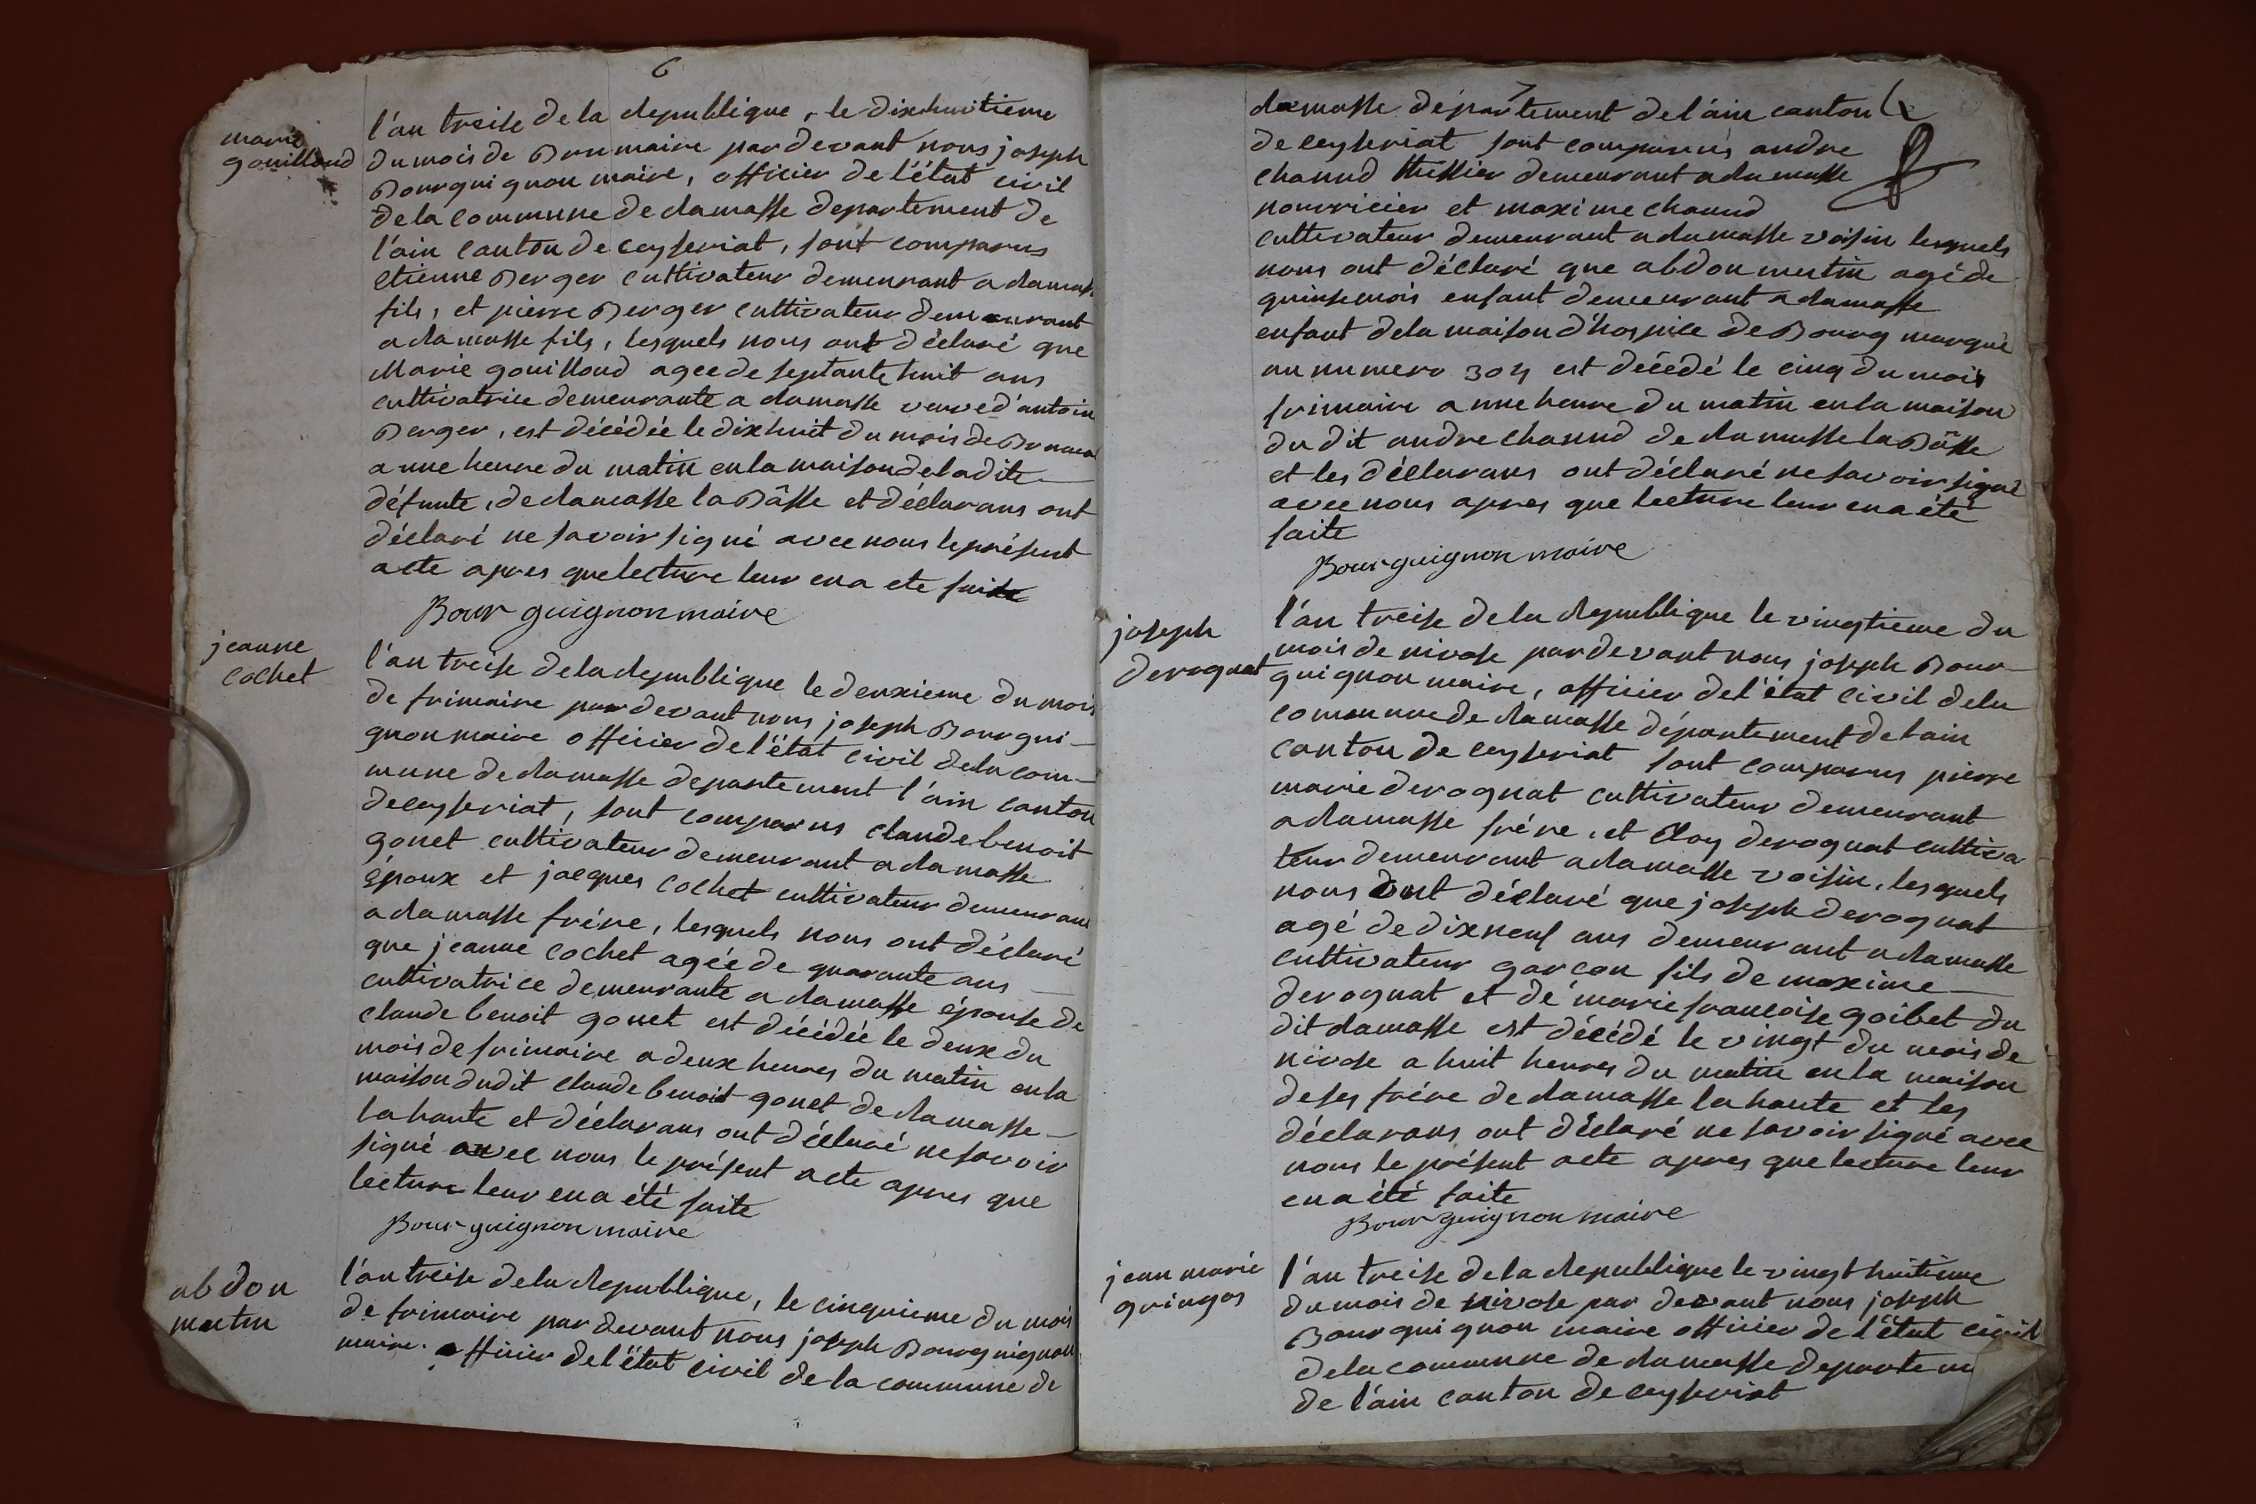 6
marie
gouilloud
l'an treise de la Republique, le dixhuitieme
du mois de Brumaire pardevant nous joseph
Bourguignon maire, officier de l'état civil
de la commune de Ramasse departement de
l'ain canton de ceyseriat, sont comparus
etienne Berger cultivateur demeurant a Ramasse
fils, et pierre Berger cultivateur demeurant
a Ramasse fils, lesquels nous ont déclaré que
Marie gouilloud agee de septante huit ans
cultivatrice demeurante a Ramasse veuve d'antoine
Berger, est décédée le dixhuit du mois de Brumaire
a une heure du matin en la maison de la dite
défunte, de Ramasse la Bâsse et déclarans ont
déclaré ne savoir signé avec nous le présent
acte apres que lecture leur en a ete faite
Bourguignon maire
jeanne
cochet
l'an treise de la Republique le deuxieme du mois
de frimaire par devant nous joseph Bourgui-
gnon maire officier de l'état civil de la com-
mune de Ramasse departement l'ain canton
de ceyseriat, sont comparus claude benoit
gonet cultivateur demeurant a Ramasse
époux et jacques cochet cultivateur demeurant
a Ramasse frére, lesquels nous ont déclaré
que jeanne cochet agée de quarante ans
cultivatrice demeurante a Ramasse épouse de
claude benoit gonet est décédée le deux du
mois de frimaire a deux heures du matin en la
maison dudit claude benoit gonet de Ramasse
la haute et déclarans ont déclaré ne savoir
signé avec nous le présent acte apres que
lecture leur en a été faite
Bourguignon maire
abdon
mertin
l'an treise de la Republique, le cinquieme du mois
de frimaire par devant nous joseph Bourguignon
maire. officier de l'état civil de la commune de
7
Ramasse département de l'ain canton
de ceyseriat sont comparus andre
chanud thissier demeurant a Ramasse
nourricier et maxime chanud
cultivateur demeurant a Ramasse voisin lesquels
nous ont déclaré que abdon mertin agé de
quinse mois enfant demeurant a Ramasse
enfant de la maison d'hospice de Bourg marqué
au numero est décédé le cinq du mois
frimaire a une heure du matin en la maison
du dit andre chanud de Ramasse la Bâsse
et les déclarans ont déclaré ne savoir signé
avec nous apres que lecture leur en a été
faite
Bourguignon maire
joseph
derognat
l'an treise de la Republique le vingtieme du
mois de nivose pardevant nous joseph Bour-
guignon maire, officier de l'état civil de la
commune de Ramasse département de lain
canton de ceyseriat sont comparus pierre
marie derognat cultivateur demeurant
a Ramasse frére, et Eloy derognat cultiva
teur demeurant a Ramasse voisin, lesquels
nous Ont déclaré que joseph derognat
agé de dixneuf ans demeurant a Ramasse
cultivateur garcon fils de maxime
derognat et de marie francoise goibet du
dit Ramasse est décédé le vingt du mois de
nivose a huit heures du matin en la maison
de ses frére de Ramasse la haute et les
déclarans ont déclaré ne savoir signé avec
nous le présent acte apres que lecture leur
en a été faite
Bourguignon maire
jean marie
gringos
l'an treise de la Republique le vingt huitieme
du mois de nivose par devant nous joseph
Bourguignon maire officier de l'état civil
de la commune de Ramasse departem
de l'ain canton de ceyseriat